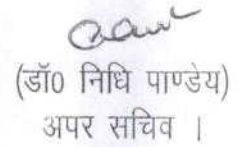 (डॉ0 निधि पाण्डेय)
अपर सचिव ।